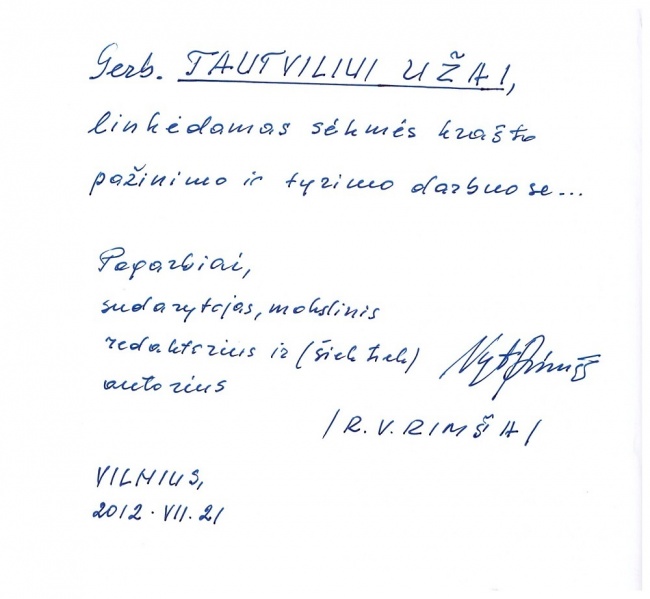 Gerb. TAUTVILIUI UŽAI,
linkėdamas sėkmės krašto
pažinimo ir tyrimo darbuose...
Pagarbiai,
sudarytojas, mokslinis
redaktorius ir (šiek tiek)
autorius
/R. V. RIMŠA/
VILNIUS,
2012. VII. 21